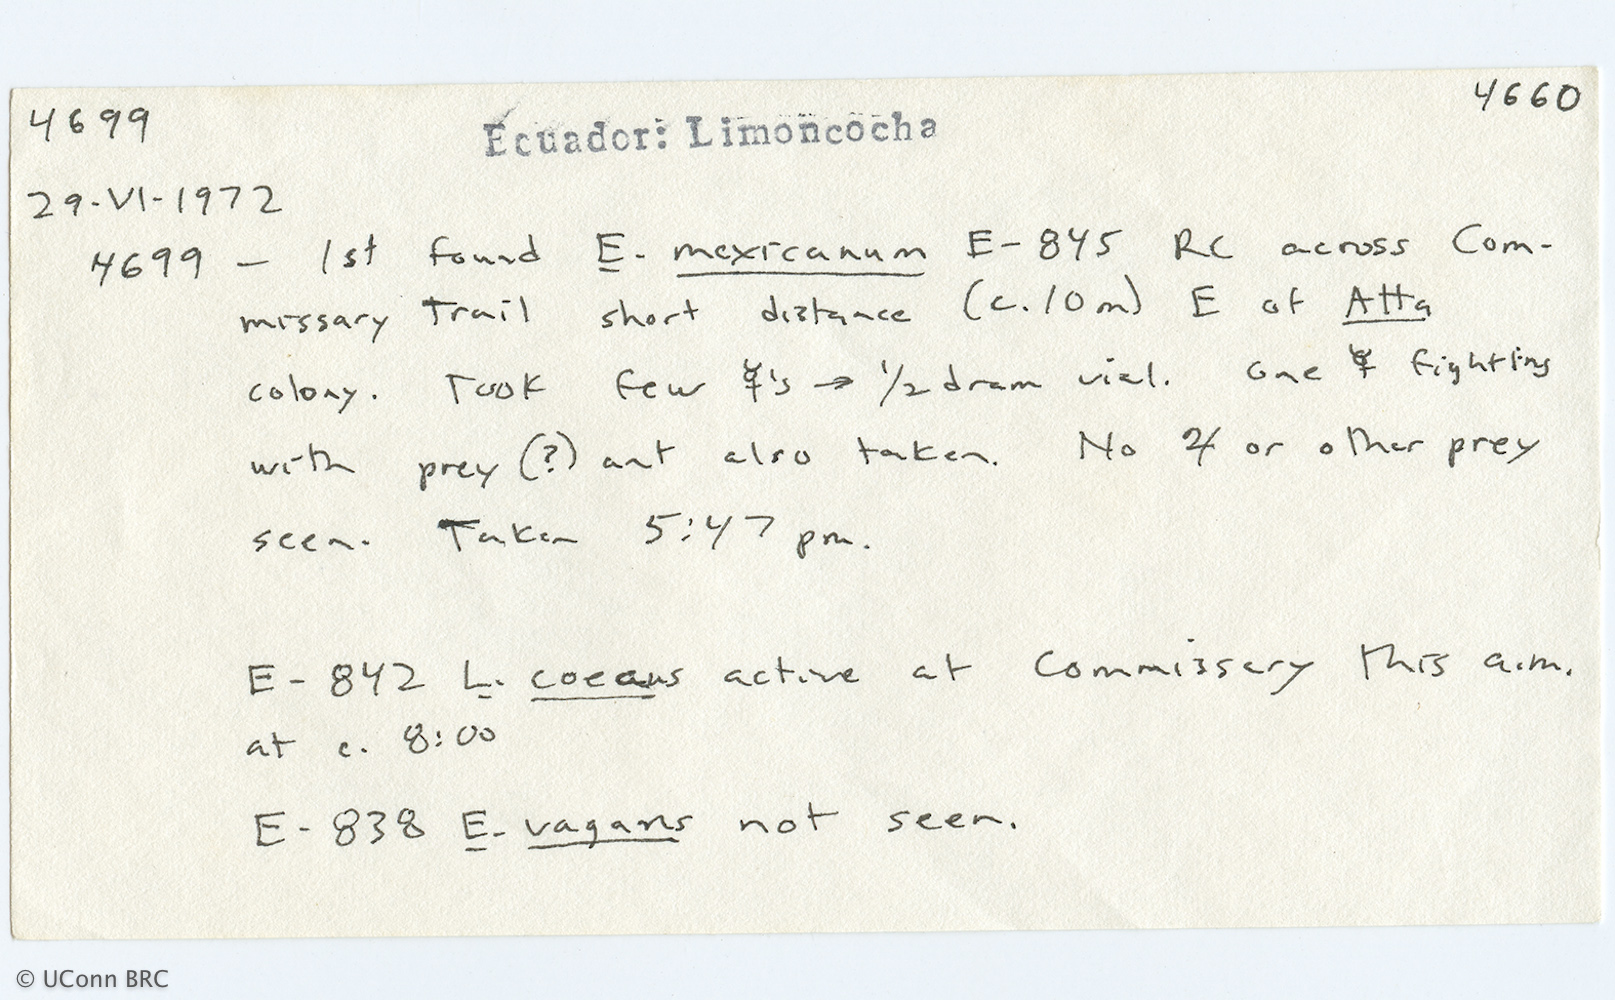 4699
4660
Ecuador: Limoncocha
29-VI-1972
4699 — 1st found E. mexicanum E-845 RC across Com-
missary Trail short distance (c. 10 m) E of Atta
colony. Took few ☿'s → 1/2 dram vial. One ☿ fighting
with prey (?) ant also taken. No ♃ or other prey
seen. Taken 5:47 pm.
E-842 L. coecus active at Commissary this a.m.
at c. 8:00
E-838 E. vagans not seen.
© UConn BRC